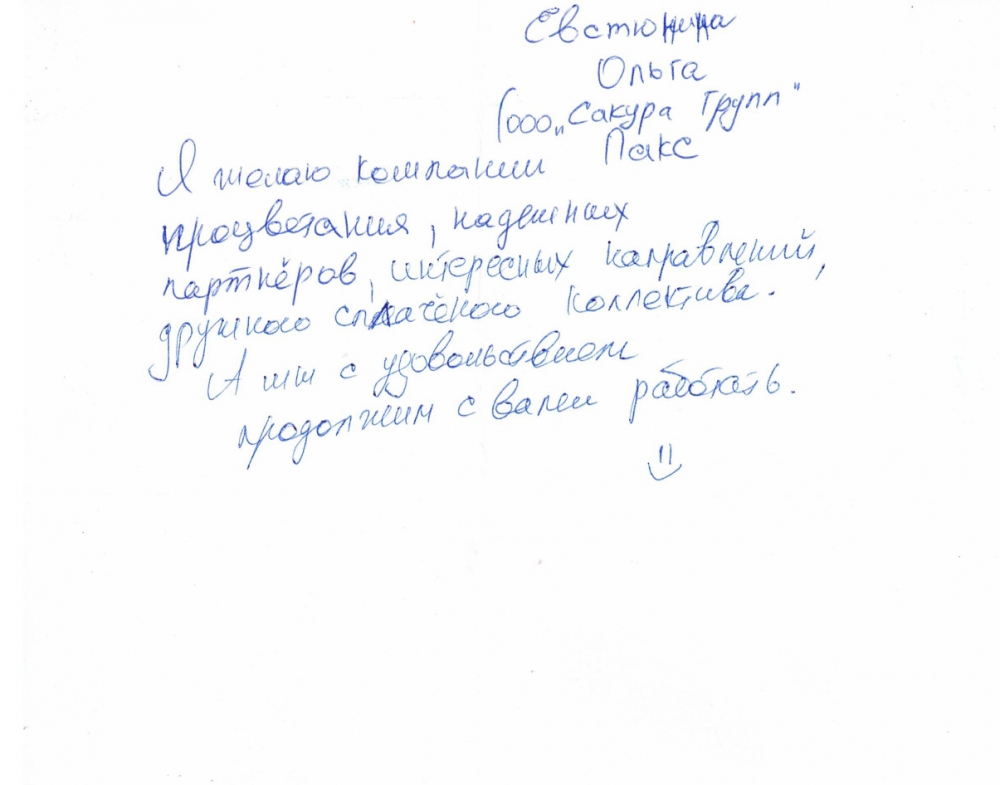 Евстюнина
Ольга
(ООО „Сакура Групп"
Я желаю компании Пакс
процветания, надежных
партнёров, интересных направлений,
дружного сплачёного коллектива.
А мы с удовольствием
продолжим с вами работать.